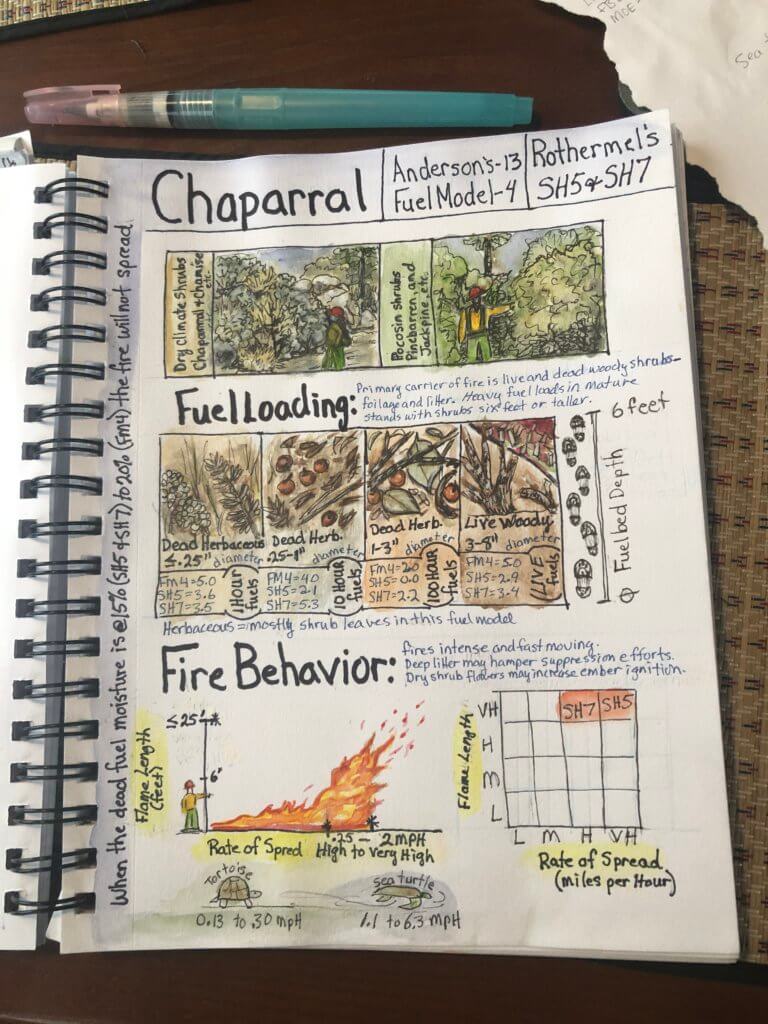 Chaparral
Anderson's-13
Fuel Model-4
Rothermel's
SH5 & SH7
Dry climate shrubs
Chaparral & Chamise
etc.
Pocosin shrubs
Pinebarren, and
Jackpine, etc.
Fuel Loading:
Primary carrier of fire is live and dead woody shrubs-
foilage and litter. Heavy fuel loads in mature
stands with shrubs six feet or taller.
Dead Herbaceous
≤.25" diameter
FM4=5.0
SH5=3.6
SH7=3.5
1 HOUR
fuels
Dead Herb.
.25-1" diameter
FM4=4.0
SH5=2.1
SH7=5.3
10 HOUR
fuels
Dead Herb.
1-3" diameter
FM4=2.0
SH5=0.0
SH7=2.2
100 HOUR
fuels
Live Woody
3-8" diameter
FM4=5.0
SH5=2.9
SH7=3.4
LIVE
fuels
6 feet
Fuelbed Depth
Herbaceous = mostly shrub leaves in this fuel model
Fire Behavior:
Fires intense and fast moving.
Deep litter may hamper suppression efforts.
Dry shrub flowers may increase ember ignition.
Flame Length
(feet)
≤25'
6'
Rate of Spred
.25 - 2 MPH
High to Very High
Tortoise
0.13 to .30 mpH
sea turtle
1.1 to 6.3 mpH
Flame Length
VH
H
M
L
SH7
SH5
L M H VH
Rate of Spread
(miles per Hour)
When the dead fuel moisture is @15% (SH5 & SH7) to 20% (FM4) the fire will not spread.